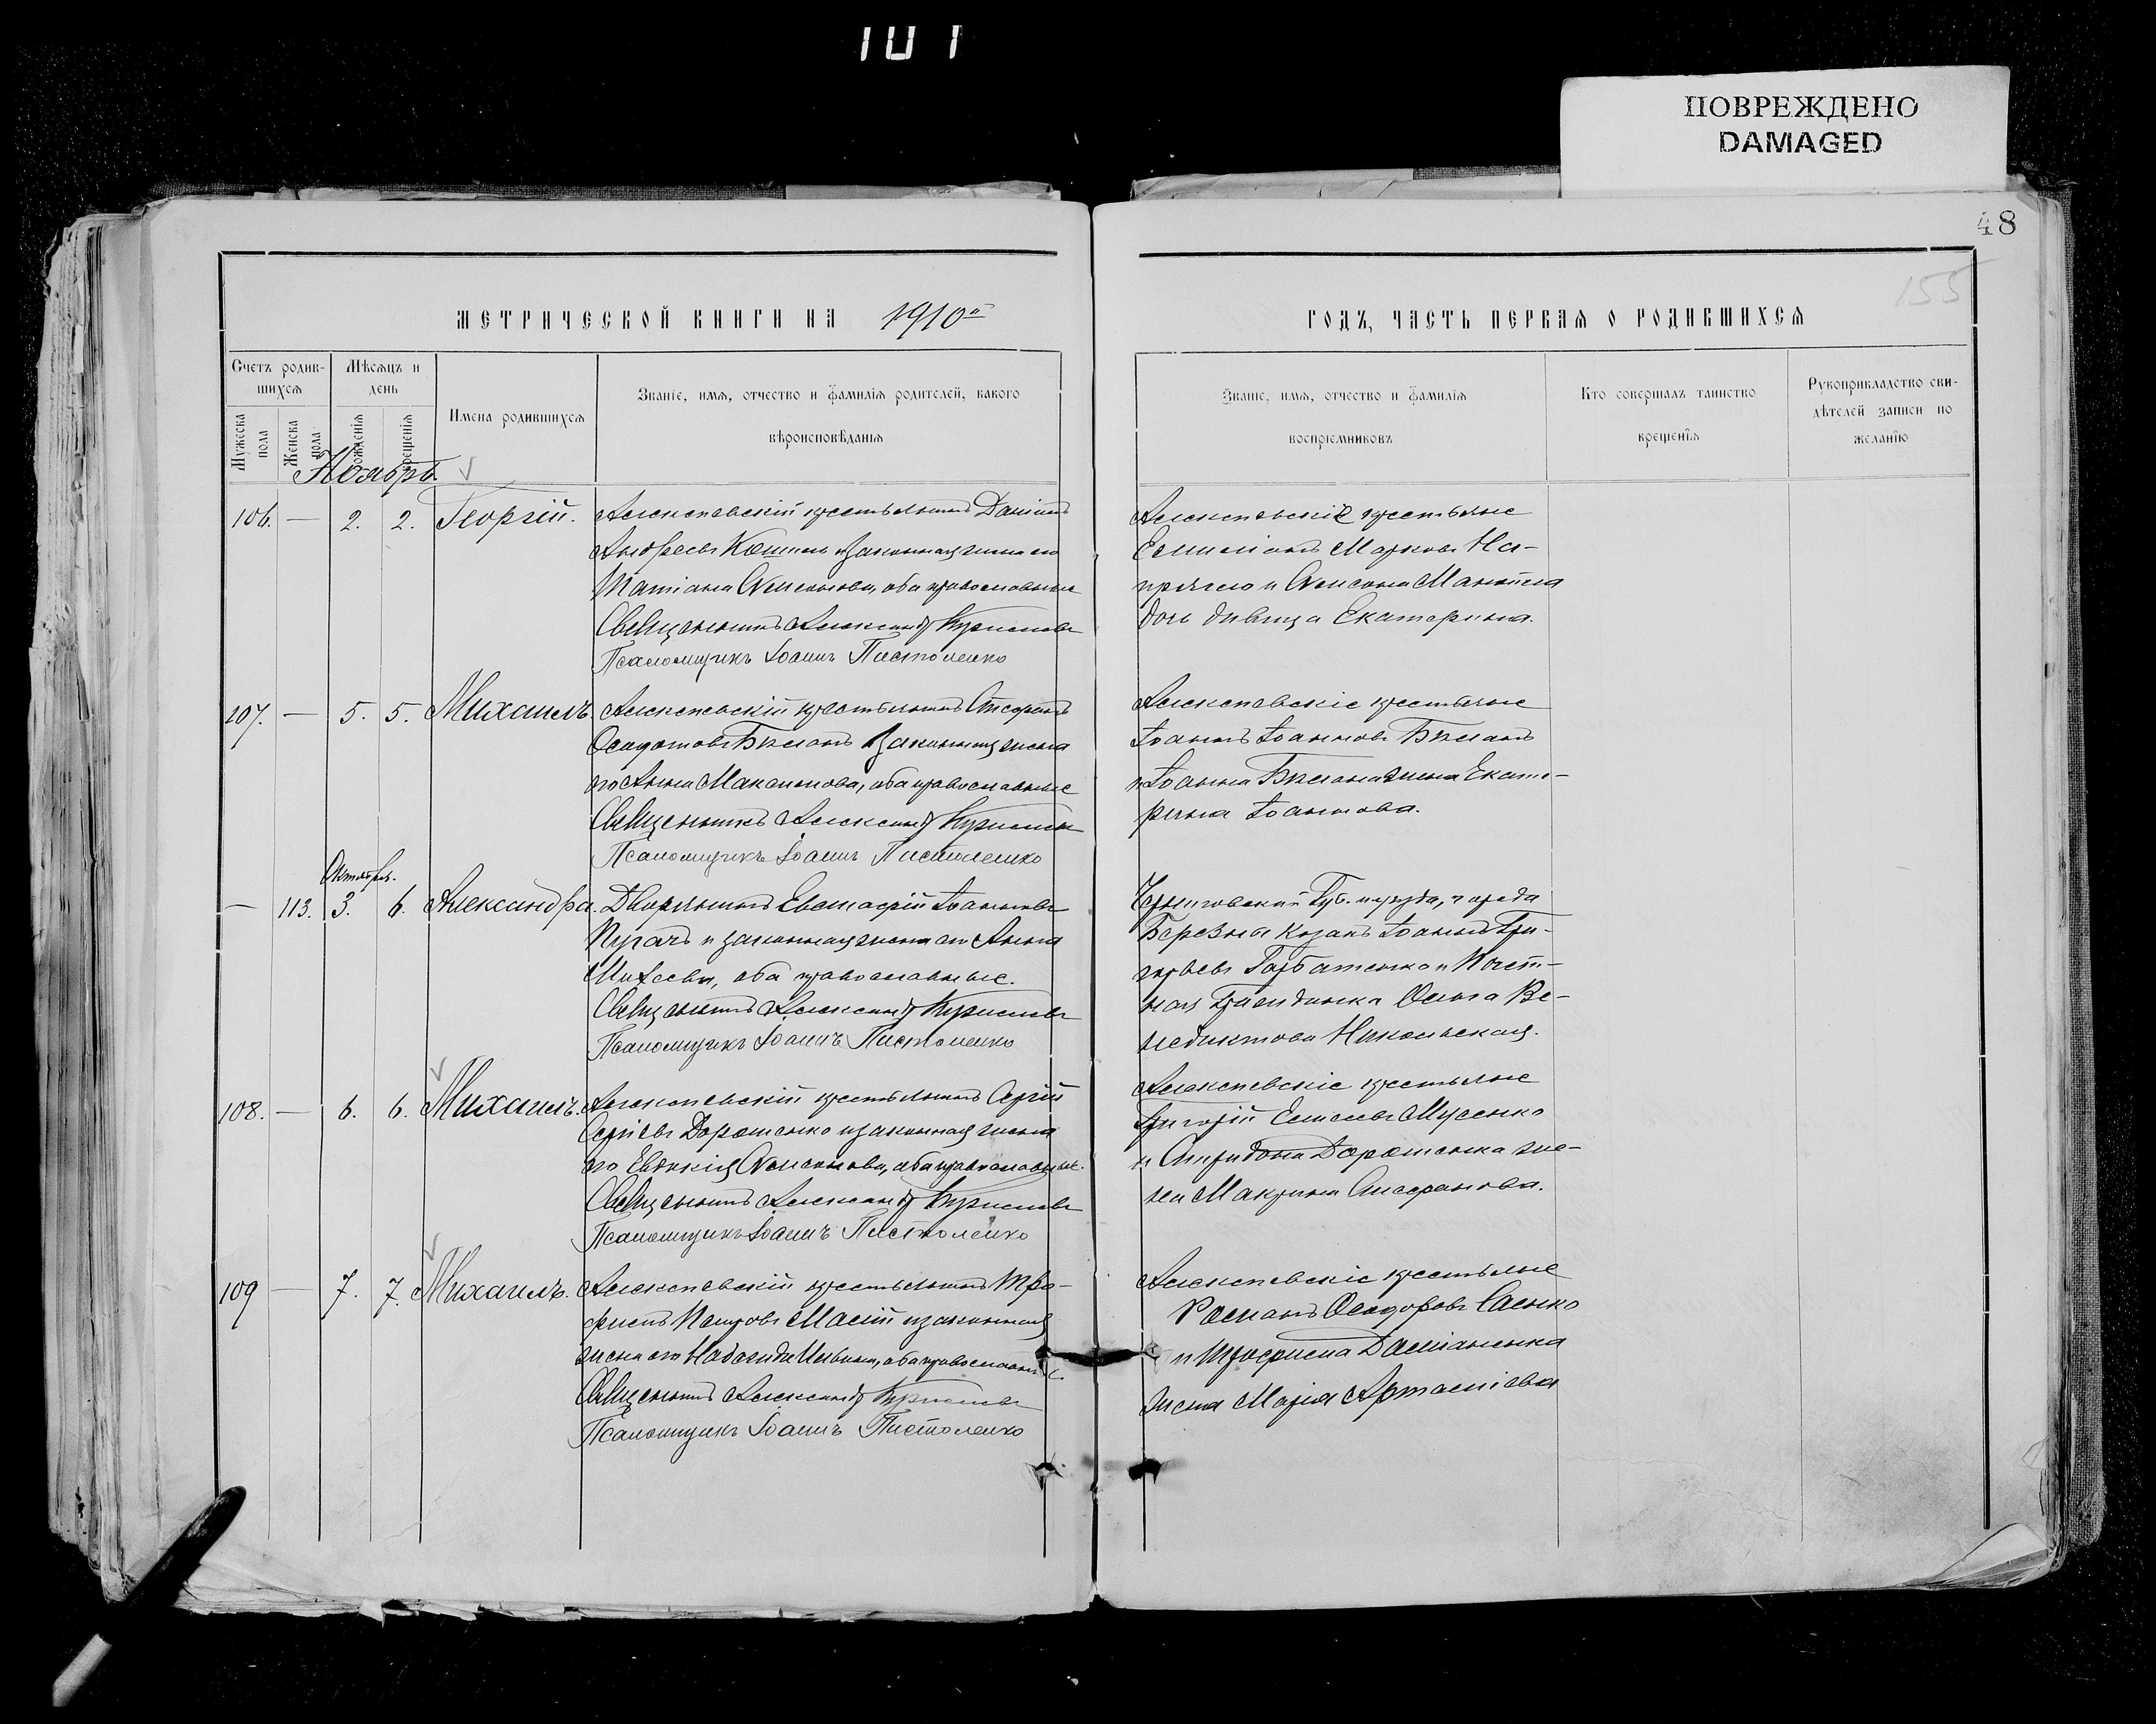 101
ПОВРЕЖДЕНО
DAMAGED
48
155
МЕТРИЧЕСКОЙ КНИГИ НА 1910й
ГОДЪ, ЧАСТЬ ПЕРВАЯ О РОДИВШИХСЯ
Счетъ родив-
шихся
Мѣсяцъ и
день
Мужеска
пола
Женска
пола
рожденія
крещенія
Имена родившихся
Званіе, имя, отчество и фамилія родителей, какого
вѣроисповѣданія
Званіе, имя, отчество и фамилія
воспріемниковъ
Кто совершалъ таинство
крещенія
Рукоприкладство сви-
дѣтелей записи по
желанію
Ноябрь
106. — 2. 2. Георгій.
Алексѣевскій крестьянинъ Даніилъ
Андреевъ и законная жена его
Татіана оба православные
Священникъ Александръ
Псаломщикъ Іоаннъ Пистоленко
Алексѣевскіе крестьяне
Емиліанъ Марковъ На-
и
дочь дѣвица Екатерина.
107. — 5. 5. Михаилъ.
Алексѣевскій крестьянинъ Стефанъ
Ѳеодотовъ и законная жена
его Анна Максимова, оба православные
Священникъ Александръ
Псаломщикъ Іоаннъ Пистоленко
Алексѣевскіе крестьяне
Іоаннъ Іоанновъ
и Іоанна жена Екате-
рина Іоаннова.
Октября.
— 113. 3. 6. Александра.
Дворянинъ Евстафій Іоанновъ
Пугачъ и законная жена его Анна
Михеева, оба православные.
Священникъ Александръ
Псаломщикъ Іоаннъ Пистоленко
Черниговской Губ. и уѣзда, города
Березна козакъ Іоаннъ Гри-
горьевъ Горбатенко и Почет-
ная Гражданка Ве-
недиктова Никольская.
108. — 6. 6. Михаилъ.
Алексѣевскій крестьянинъ Сергій
Сергіевъ Дорошенко и законная жена
его Евдокія оба православные.
Священникъ Александръ
Псаломщикъ Іоаннъ Пистоленко
Алексѣевскіе крестьяне
Григорій Мусенко
и Спиридона Дорошенка же-
на Макрина Стефанова.
109 — 7. 7. Михаилъ.
Алексѣевскій крестьянинъ Тро-
фимъ Петровъ и законная
жена его оба православные.
Священникъ Александръ
Псаломщикъ Іоаннъ Пистоленко
Алексѣевскіе крестьяне
Романъ Ѳеодоровъ Саенко
и Трофима
жена Марія Артеміева